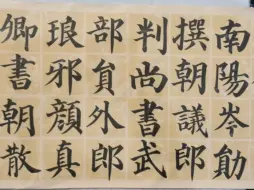 南陽岑勛
撰朝議郎
判尚書武
部貟外郎
琅邪顏真
卿書朝散